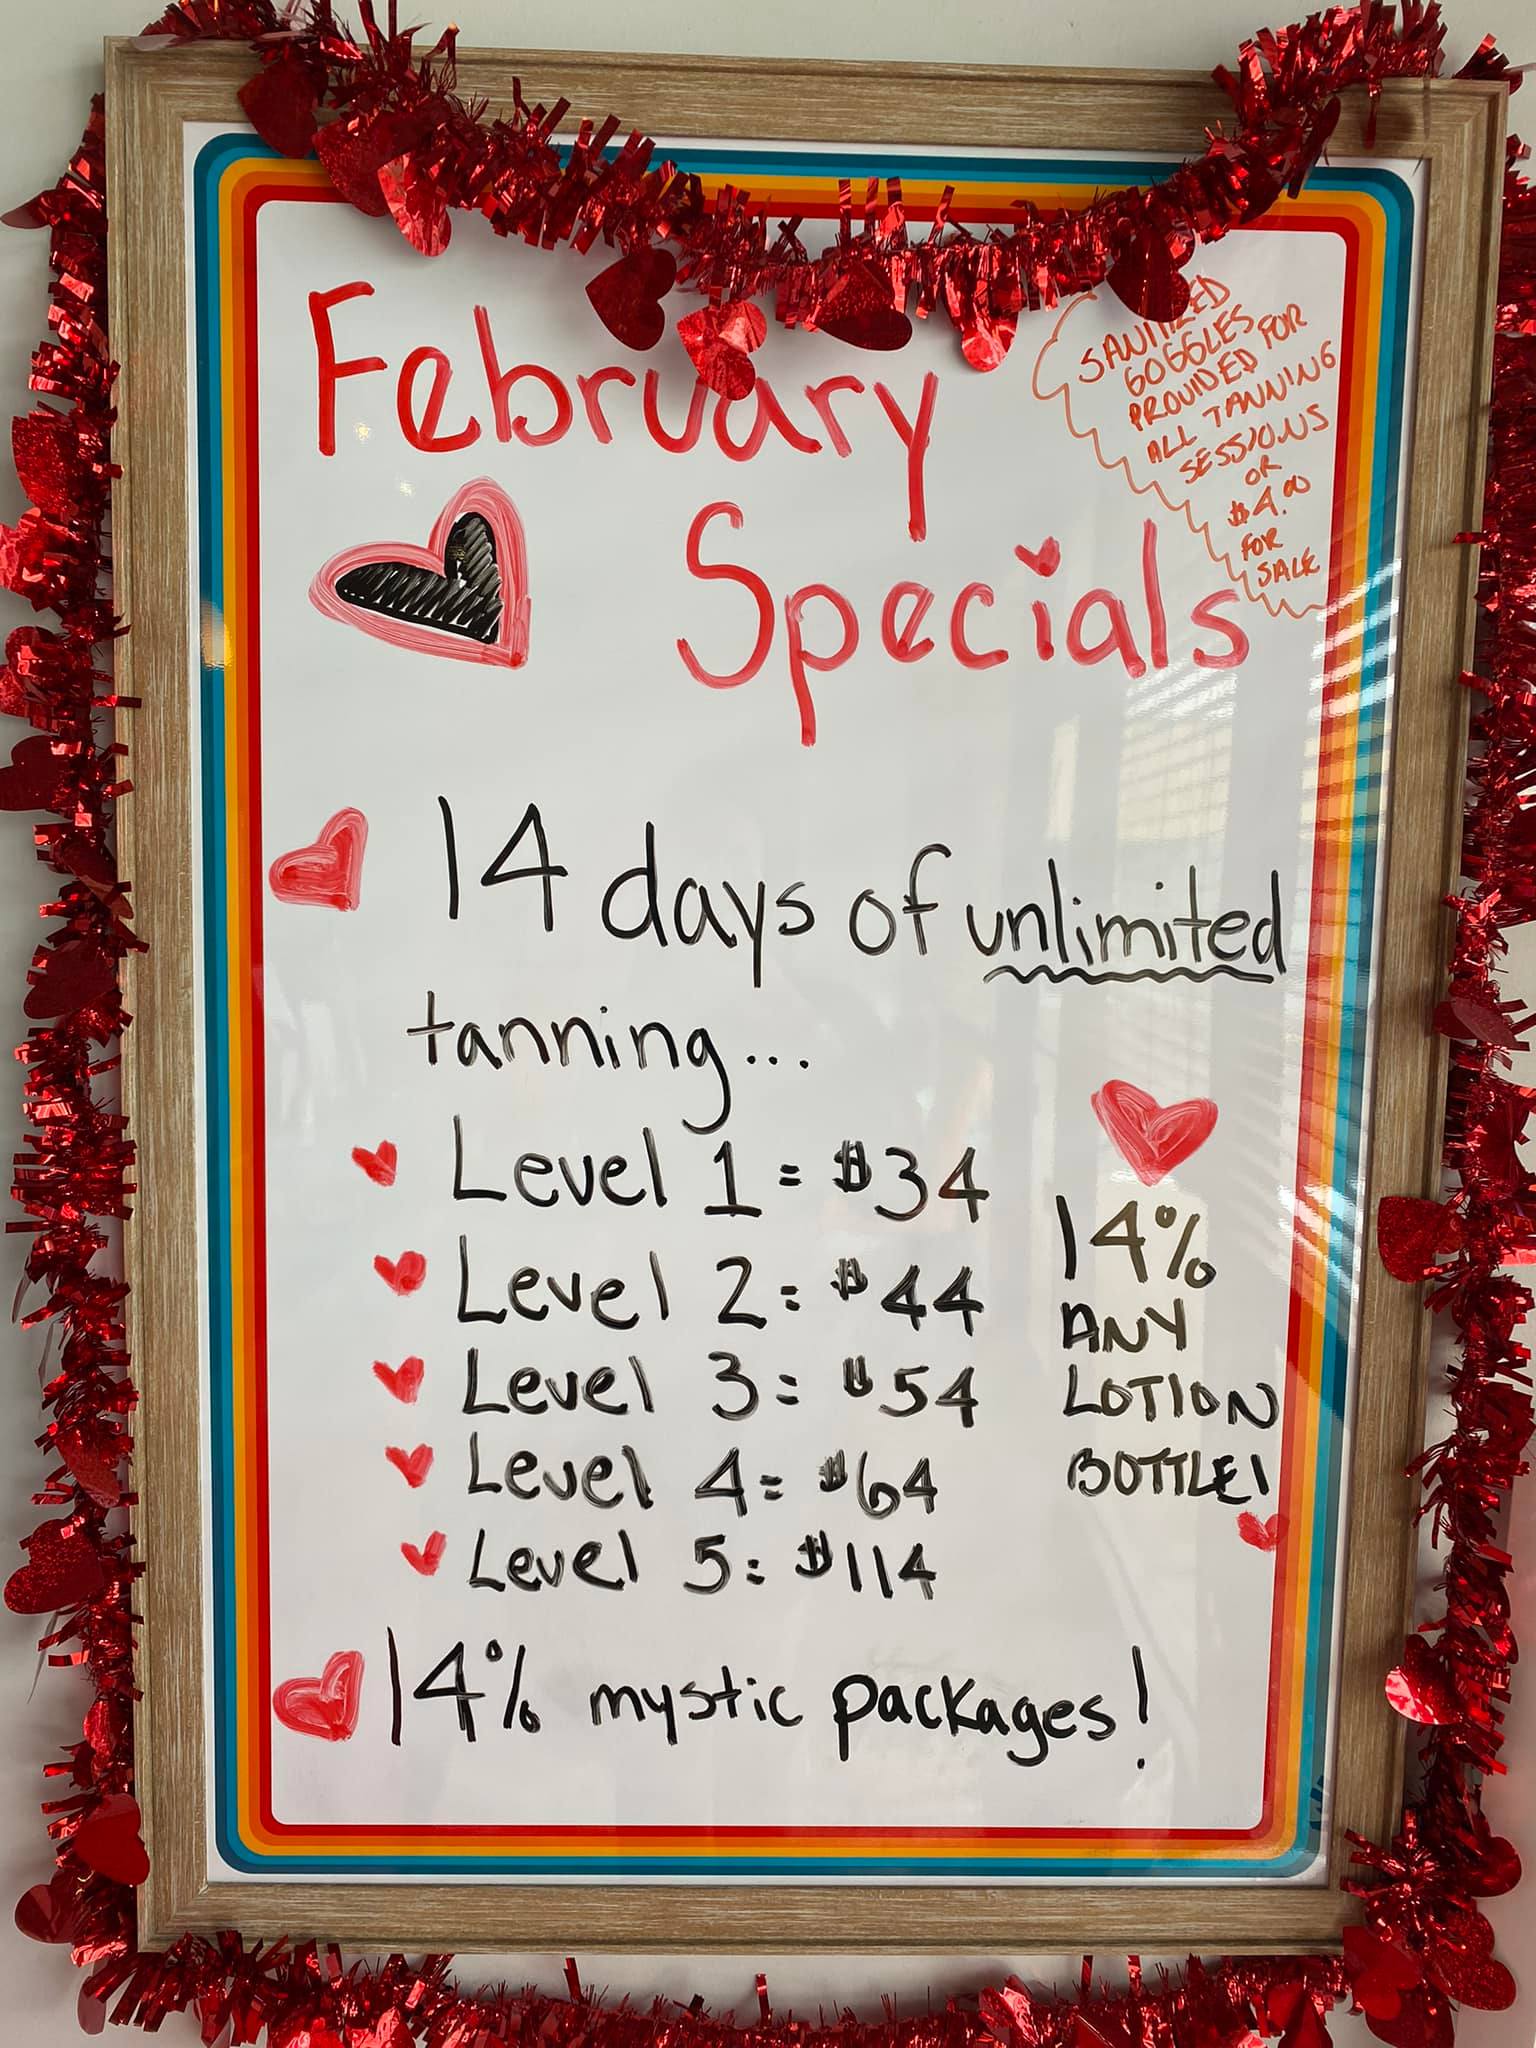 February
Specials
SANITIZED
GOGGLES
PROVIDED FOR
ALL TANNING
SESSIONS
OR
$4.00
FOR
SALE
14 days of unlimited
tanning...
Level 1 = $34
Level 2 = $44
Level 3 = $54
Level 4 = $64
Level 5 = $114
14%
ANY
LOTION
BOTTLE!
14% mystic packages!